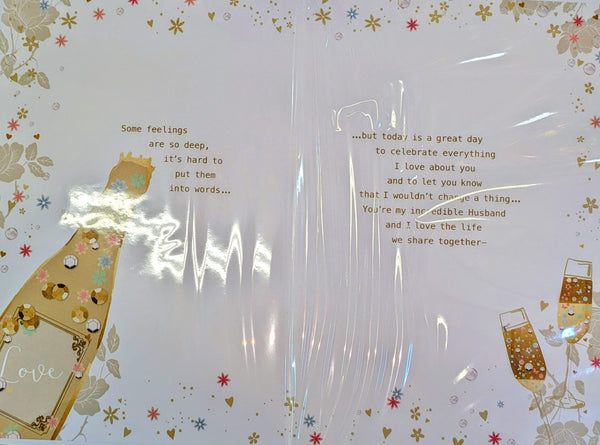 Some feelings
are so deep,
it's hard to
put them
into words...
...but today is a great day
to celebrate everything
I love about you
and to let you know
that I wouldn't change a thing...
You're my incredible Husband
and I love the life
we share together–
Love